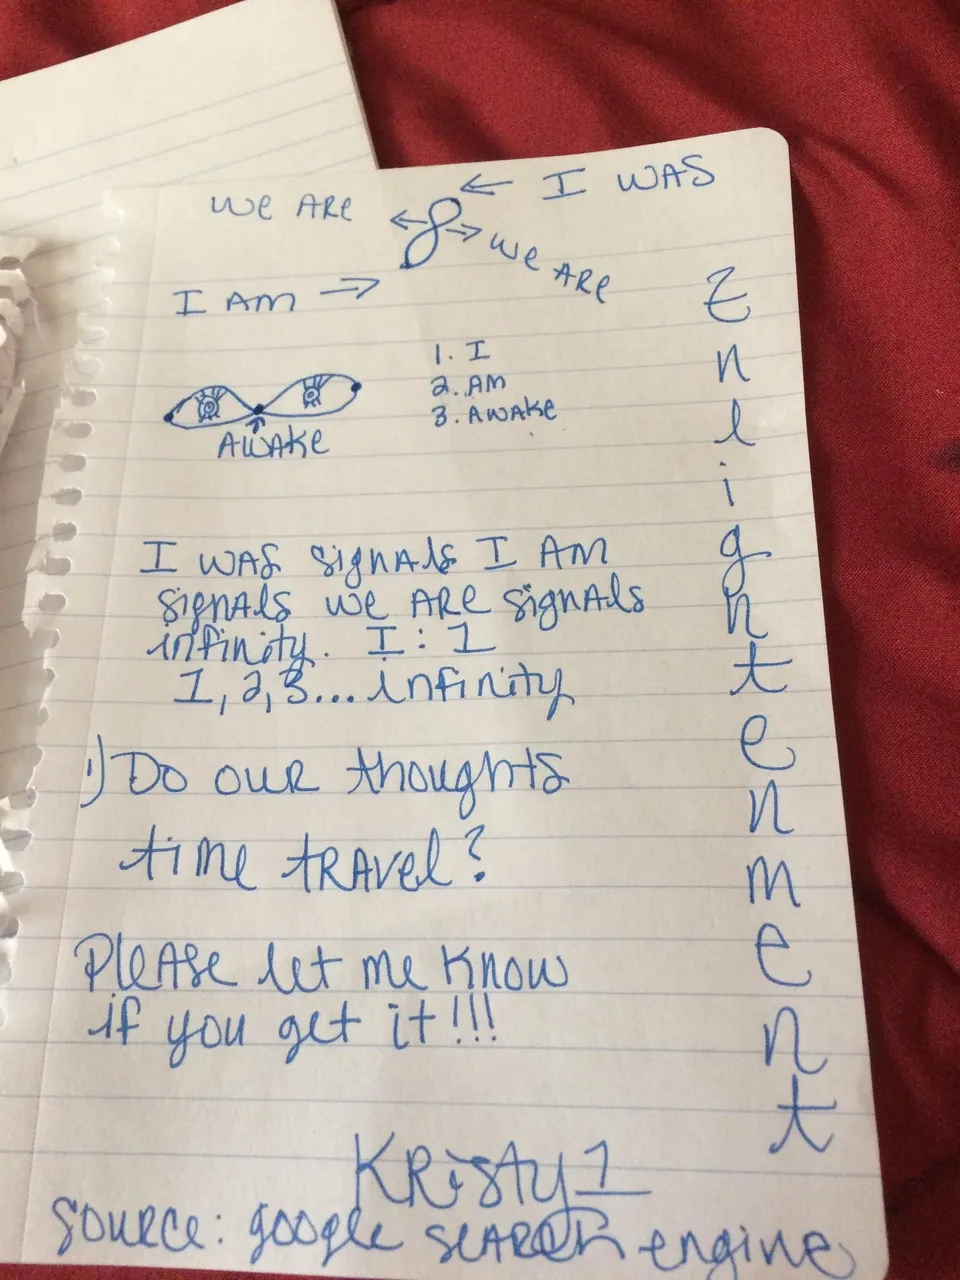 I WAS
WE ARE
WE ARE
I AM
1. I
2. AM
3. AWAKE
AWAKE
I WAS SIGNALS I AM
SIGNALS WE ARE SIGNALS
infinity. I : 1
1, 2, 3... infinity
1) DO OUR thoughts
time TRAVEL?
PLEASE let me KNOW
if you get it!!!
KRISTY 1
SOURCE: google SEARCH engine
Enlightenment